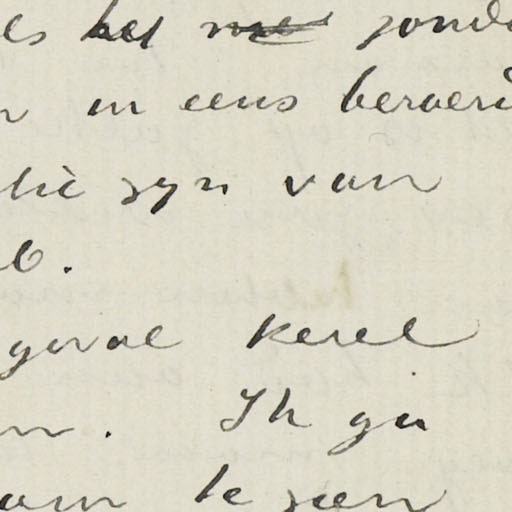 es het zond
n en eens beroeri
die zyn van
b.
geval kerel
en. Ik ga
om te zien